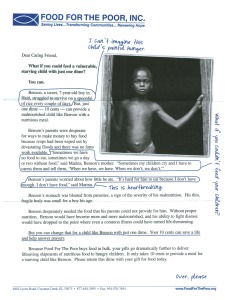 FOOD FOR THE POOR, INC.
Saving Lives... Transforming Communities... Renewing Hope
I can't imagine this
child's painful hunger.
Dear Caring Friend,
What if you could feed a vulnerable,
starving child with just one dime?
You can.
Benson, a sweet, 7-year-old boy in
Haiti, struggled to survive on a spoonful
of rice every couple of days. But, just
one dime — 10 cents — can provide a
malnourished child like Benson with a
nutritious meal.
Benson's parents were desperate
for ways to make money to buy food
because crops had been wiped out by
devastating floods and there was no farm
work available. "Sometimes we have
no food to eat, sometimes we go a day
or two without food," said Marina, Benson's mother. "Sometimes my children cry and I have to
caress them and tell them, 'When we have, we have. When we don't, we don't.'"
Benson's parents worried about how little he ate. "It's hard for him to eat because I don't have
enough. I don't have food," said Marina.
This is heartbreaking.
What if you couldn't feed your children?
Benson's stomach was bloated from parasites, a sign of the severity of his malnutrition. His thin,
fragile body was small for a boy his age.
Benson desperately needed the food that his parents could not provide for him. Without proper
nutrition, Benson would have become more and more malnourished, and his ability to fight disease
would have dropped to the point where even a common illness could have caused his untimely death.
But you can change that for a child like Benson with just one dime. Your 10 cents can save a life
and help answer prayers.
Because Food For The Poor buys food in bulk, your gifts go dramatically further to deliver
lifesaving shipments of nutritious food to hungry children. It only takes 10 cents to provide a meal for
a starving child like Benson. Please return the dime with your gift for food today.
over, please
www.FoodForThePoor.org